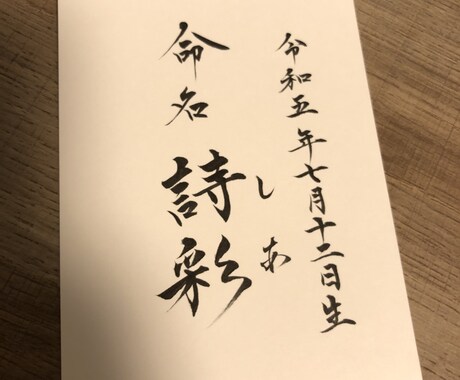 令和五年七月十二日生
しあ
命名 詩彩